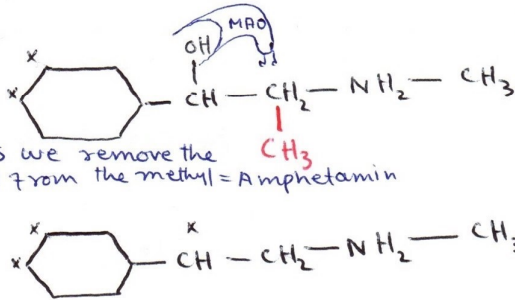 MAO
OH
x
x
CH — CH₂ — NH₂ — CH₃
CH₃
we remove the
from the methyl = Amphetamin
x
x
x
CH — CH₂ — NH₂ — CH₃